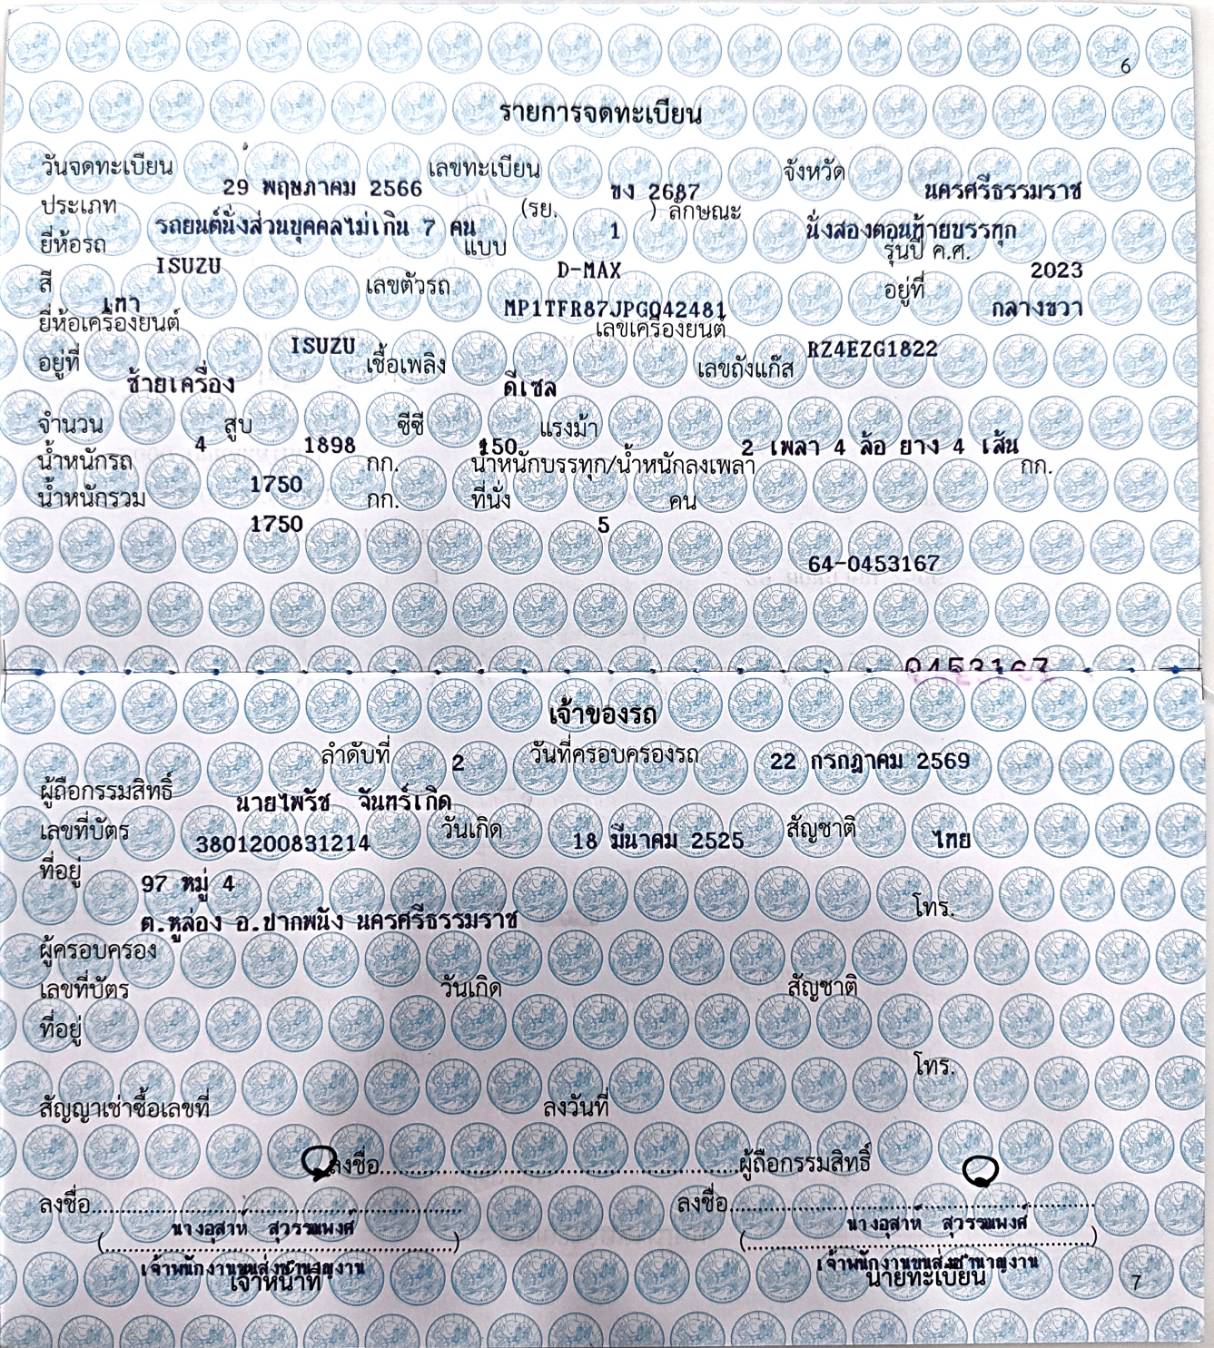 6
รายการจดทะเบียน
วันจดทะเบียน 29 พฤษภาคม 2566 เลขทะเบียน ขง 2687 จังหวัด นครศรีธรรมราช
ประเภท รถยนต์นั่งส่วนบุคคลไม่เกิน 7 คน (รย. 1 ) ลักษณะ นั่งสองตอนท้ายบรรทุก
ยี่ห้อรถ ISUZU แบบ D-MAX รุ่นปี ค.ศ. 2023
สี เทา เลขตัวรถ MP1TFR87JPG042481 อยู่ที่ กลางขวา
ยี่ห้อเครื่องยนต์ ISUZU เลขเครื่องยนต์ RZ4EZG1822
อยู่ที่ ซ้ายเครื่อง เชื้อเพลิง ดีเซล เลขถังแก๊ส
จำนวน 4 สูบ 1898 ซีซี 150 แรงม้า 2 เพลา 4 ล้อ ยาง 4 เส้น
น้ำหนักรถ 1750 กก. น้ำหนักบรรทุก/น้ำหนักลงเพลา กก.
น้ำหนักรวม 1750 กก. ที่นั่ง 5 คน
64-0453167
0453167
เจ้าของรถ
ลำดับที่ 2 วันที่ครอบครองรถ 22 กรกฎาคม 2569
ผู้ถือกรรมสิทธิ์ นายไพรัช จันทร์เกิด
เลขที่บัตร 3801200831214 วันเกิด 18 มีนาคม 2525 สัญชาติ ไทย
ที่อยู่ 97 หมู่ 4
ต.หูล่อง อ.ปากพนัง นครศรีธรรมราช โทร.
ผู้ครอบครอง
เลขที่บัตร วันเกิด สัญชาติ
ที่อยู่
โทร.
สัญญาเช่าซื้อเลขที่ ลงวันที่
ลงชื่อ ผู้ถือกรรมสิทธิ์
ลงชื่อ ลงชื่อ
นางอุสาห์ สุวรรณพงศ์ นางอุสาห์ สุวรรณพงศ์
( ) ( )
เจ้าพนักงานขนส่งชำนาญงาน เจ้าพนักงานขนส่งชำนาญงาน
เจ้าหน้าที่ นายทะเบียน
7